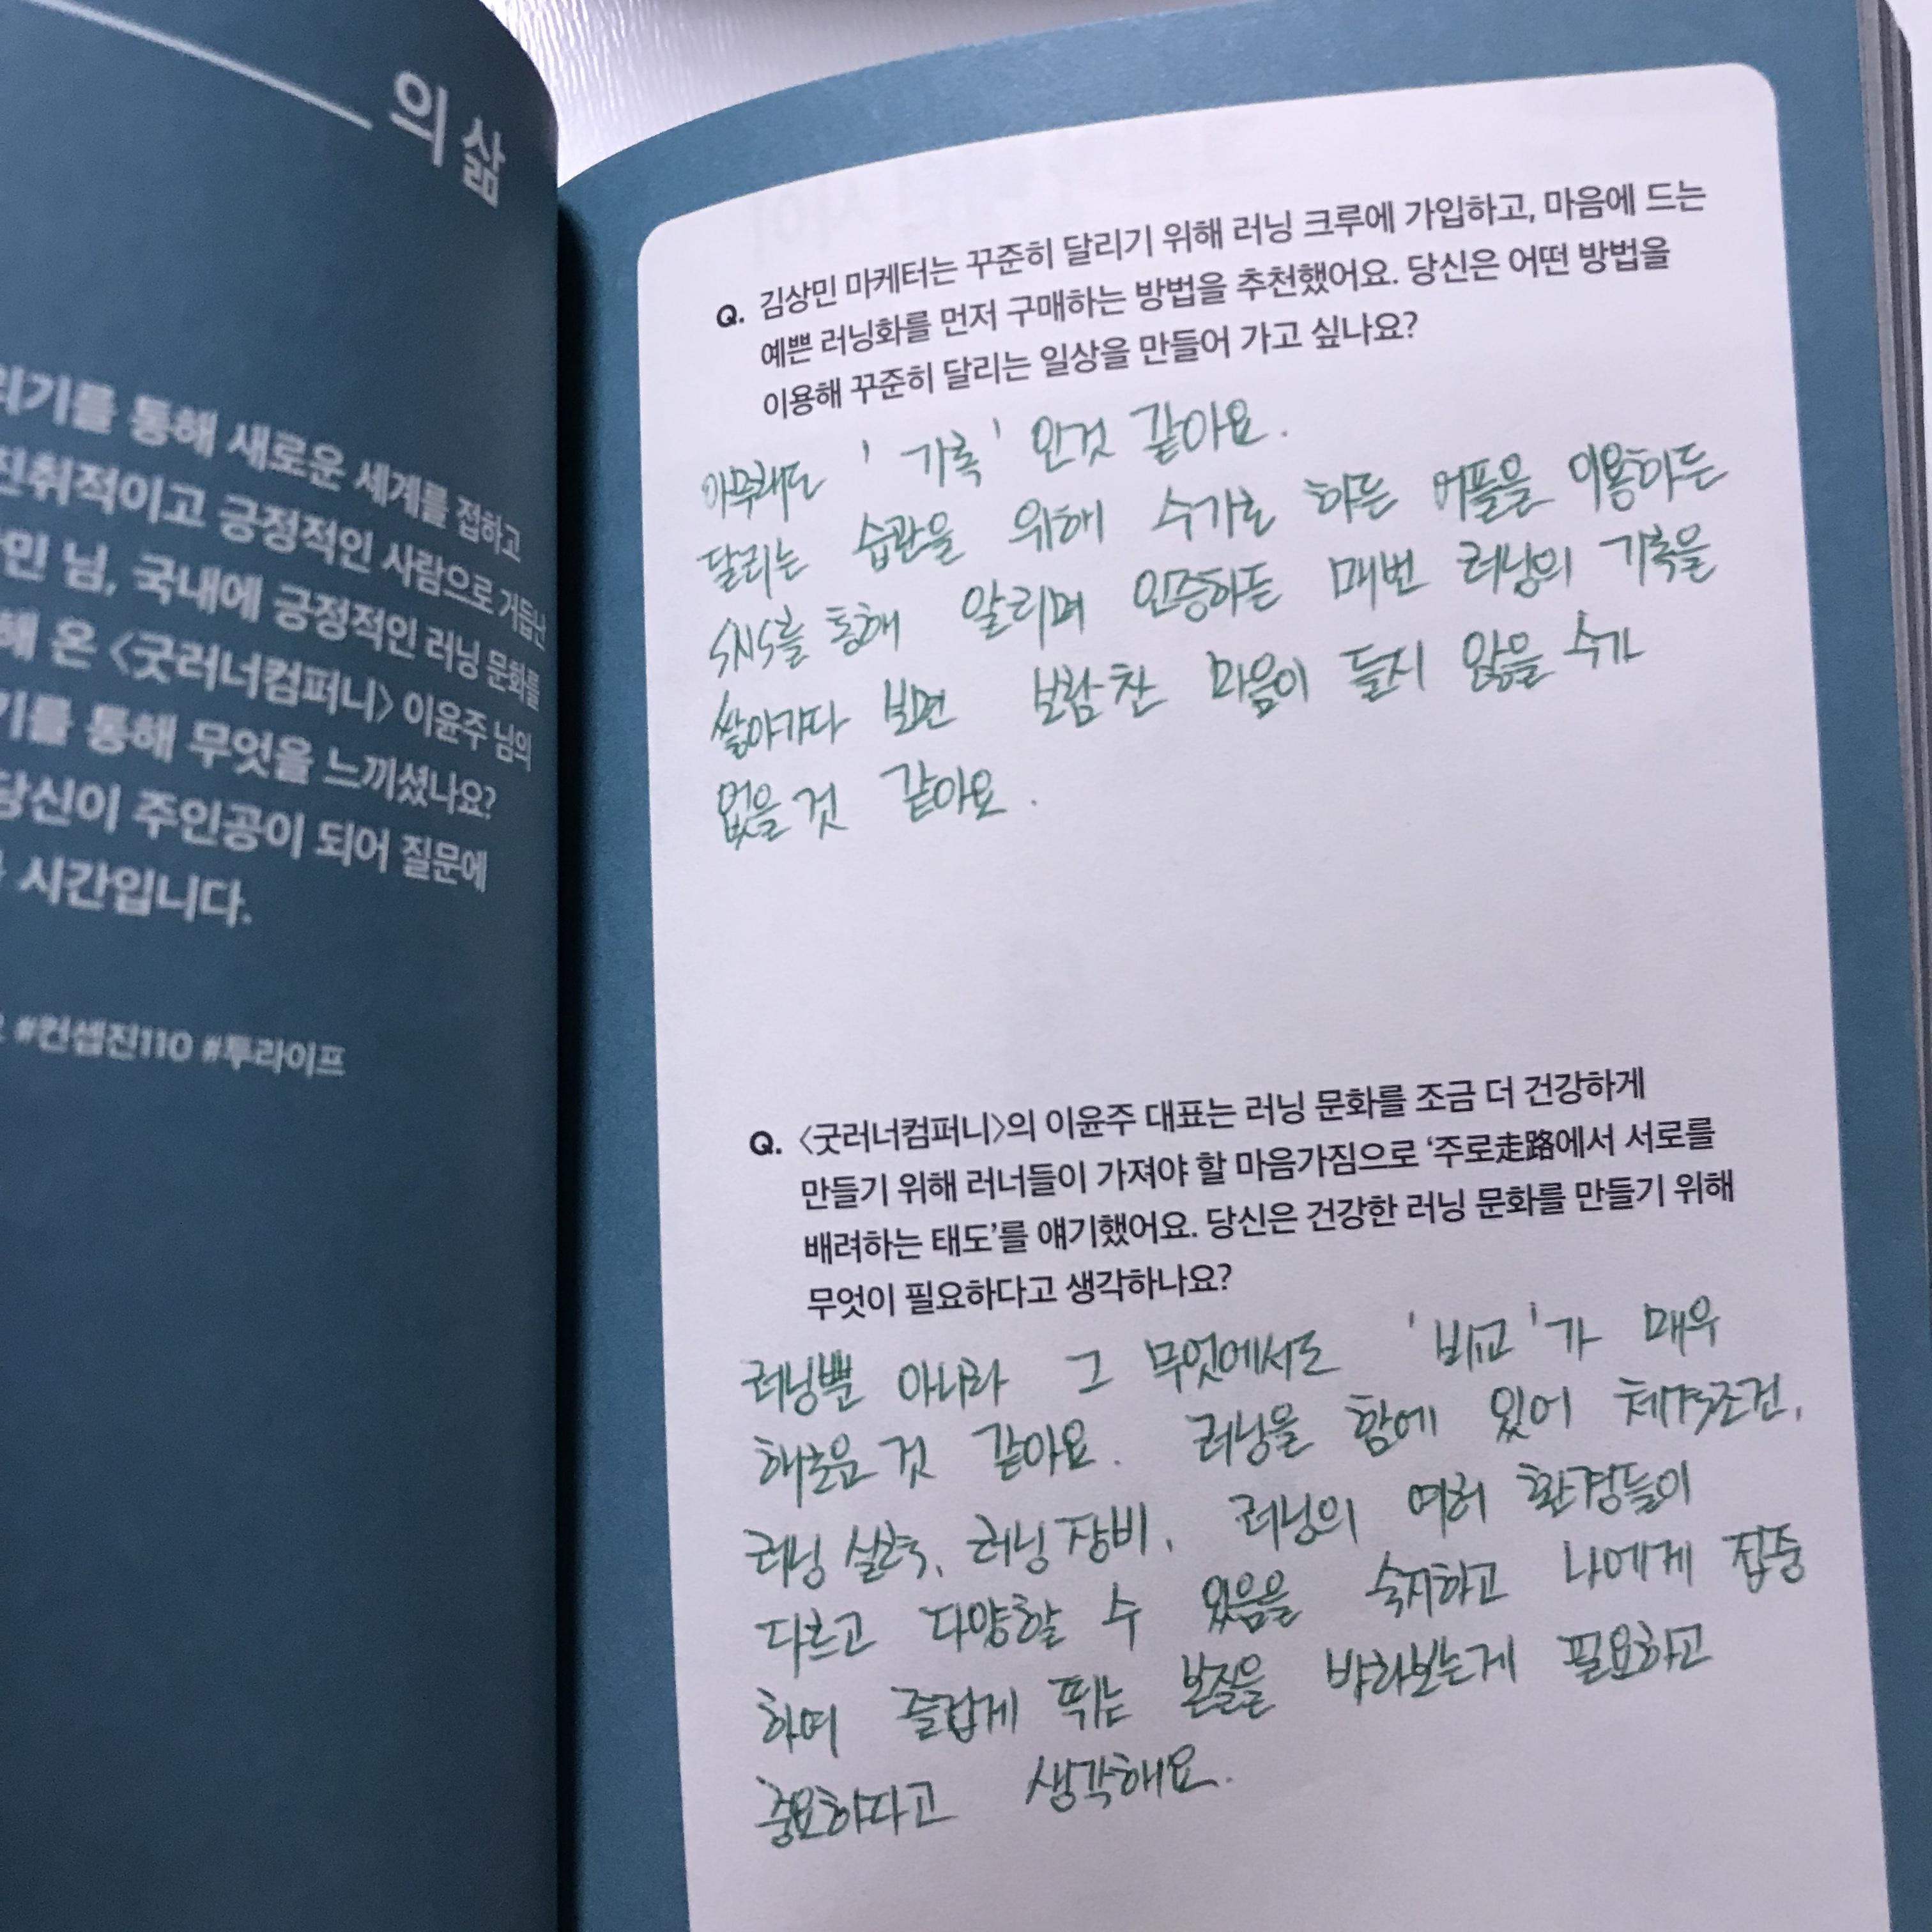 의 삶
리기를 통해 새로운 세계를 접하고
진취적이고 긍정적인 사람으로 거듭난
민 님, 국내에 긍정적인 러닝 문화를
해 온 〈굿러너컴퍼니〉 이윤주 님의
기를 통해 무엇을 느끼셨나요?
당신이 주인공이 되어 질문에
시간입니다.
#컨셉진110 #투라이프
Q. 김상민 마케터는 꾸준히 달리기 위해 러닝 크루에 가입하고, 마음에 드는
예쁜 러닝화를 먼저 구매하는 방법을 추천했어요. 당신은 어떤 방법을
이용해 꾸준히 달리는 일상을 만들어 가고 싶나요?
아무래도 '기록' 인것 같아요.
달리는 습관을 위해 수기로 하든 어플을 이용하든
SNS를 통해 알리며 인증하든 매번 러닝의 기록을
쌓아가다 보면 보람찬 마음이 들지 않을 수가
없을 것 같아요.
Q. 〈굿러너컴퍼니〉의 이윤주 대표는 러닝 문화를 조금 더 건강하게
만들기 위해 러너들이 가져야 할 마음가짐으로 ‘주로走路에서 서로를
배려하는 태도’를 얘기했어요. 당신은 건강한 러닝 문화를 만들기 위해
무엇이 필요하다고 생각하나요?
러닝뿐 아니라 그 무엇에서도 '비교'가 매우
해로운 것 같아요. 러닝을 함에 있어 체격조건,
러닝 실력, 러닝 장비, 러닝의 여러 환경들이
다르고 다양할 수 있음을 숙지하고 나에게 집중
하며 즐겁게 뛰는 본질을 바라보는게 필요하고
중요하다고 생각해요.